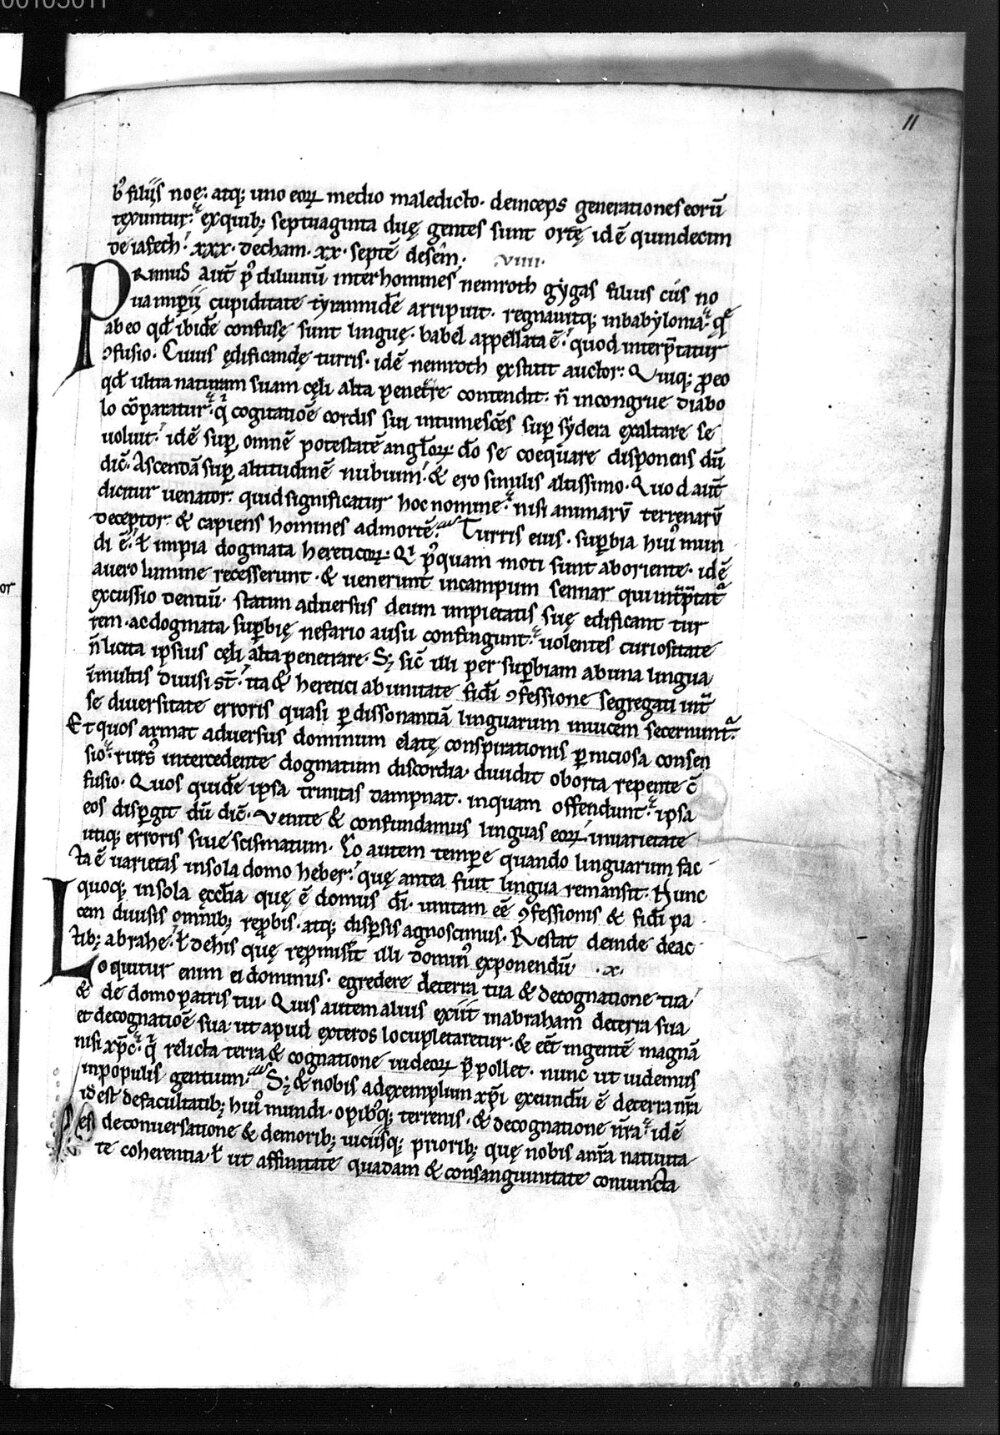 00105011
11
bꝰ filijs noę: atq; uno eoꝝ medio maledicto. deinceps generationes eorū
texuntur. exquib; septuaginta duę gentes sunt ortę idē quindecim
de iafech. xxx. decham. xx. septē desem̄. viiii.
Primus aut̄ p̄ diluuiū inter homines nemroth gygas filius cús no
ua imperij cupiditate tyrannidē arripuit. regnauitq; in babylonia. q̄
ab eo qd̄ ibidē confusę sunt linguę. babel appellata ē. quod interp̄tatur
ꝯfusio. Cuius ędificandę turris. idē nemroth exstitit auctor: Quiq; ꝓ eo
qd̄ ultra naturam suam cęli alta penetre contendit. n̄ incongrue diabo
lo cōparatur. q̇ cogitatiōe cordis sui intumescēs suꝑ sydera exaltare se
uoluit. idē suꝑ omnē potestatē angl̄oꝝ. dō se coequare disponens dū
dic̄. Ascendā suꝑ altitudinē nubium. & ero similis altissimo. Quod aut̄
dicitur uenator. quid significatur hoc nomine. nisi animarū terrenarū
deceptor. & capiens homines ad mortē. Turris eius. suꝑbia huiꝰ mun
di ē. ł impia dogmata hereticoꝝ. Qi p̄quam moti sunt ab oriente. idē
a uero lumine recesserunt. & uenerunt in campum sennar qui int̄p̄tat̄
excussio dentiū. statim aduersus deum impietatis suę edificant tur
rem. ac dogmata suꝑbię nefario ausu confingunt. uolentes curiositate
n̄ licita ipsius cęli alta penetrare. S; sic̄ illi per suꝑbiam ab una lingua
in multis diuisi st̄. ita & heretici ab unitate fidei ꝯfessione segregati int̄
se diuersitate erroris quasi ꝑ dissonantiā linguarum inuicem secernunt.
Et quos armat aduersus dominum elatę conspirationis ꝑniciosa consen
sio. rurs̄ intercedente dogmatum discordia. diuidit oborta repente c̄
fusio. Quos quidē ipsa trinitas dampnat. in quam offendunt. ipsa
eos disꝑgit dū dic̄. Venite & confundamus linguas eoꝝ. in uarietate
utiq; erroris siue scismatum. Eo autem tempr̄e quando linguarum fac
ta ē uarietas in sola domo heber. quę antea fuit lingua remansit. Hunc
quoq; in sola ęcclia quę ē domus dī. unitam eē ꝯfessionis & fidī pa
cem diuisis omnib; rep̄bis. atq; disꝑsis agnoscimus. Restat deinde de ac
tib; abrahe. ł de his quę repromisit illi dominꝰ exponendū .x.
Loquitur enim ei dominus. egredere de terra tua & de cognatione tua
& de domo patris tui. Quis autem alius exiit in abraham de terra sua
et de cognatiōe sua ut apud exteros locupletaretur. & eēt in gentē magnā
nisi xp̄c̄. q̄ relicta terra & cognatione iudeoꝝ p̄pollet. nunc ut uidemus
in populis gentium. S; & nobis ad exemplum xp̄i exeundū ē de terra nr̄a
id est de facultatib; huiꝰ mundi. opibꝰq; terrenis. & de cognatione nr̄a. idē
de conuersatione & de morib; uiciisq; priorib; quę nobis a nr̄a natiuita
te coherentia. ł ut affinitate quadam & consanguinitate coniuncta